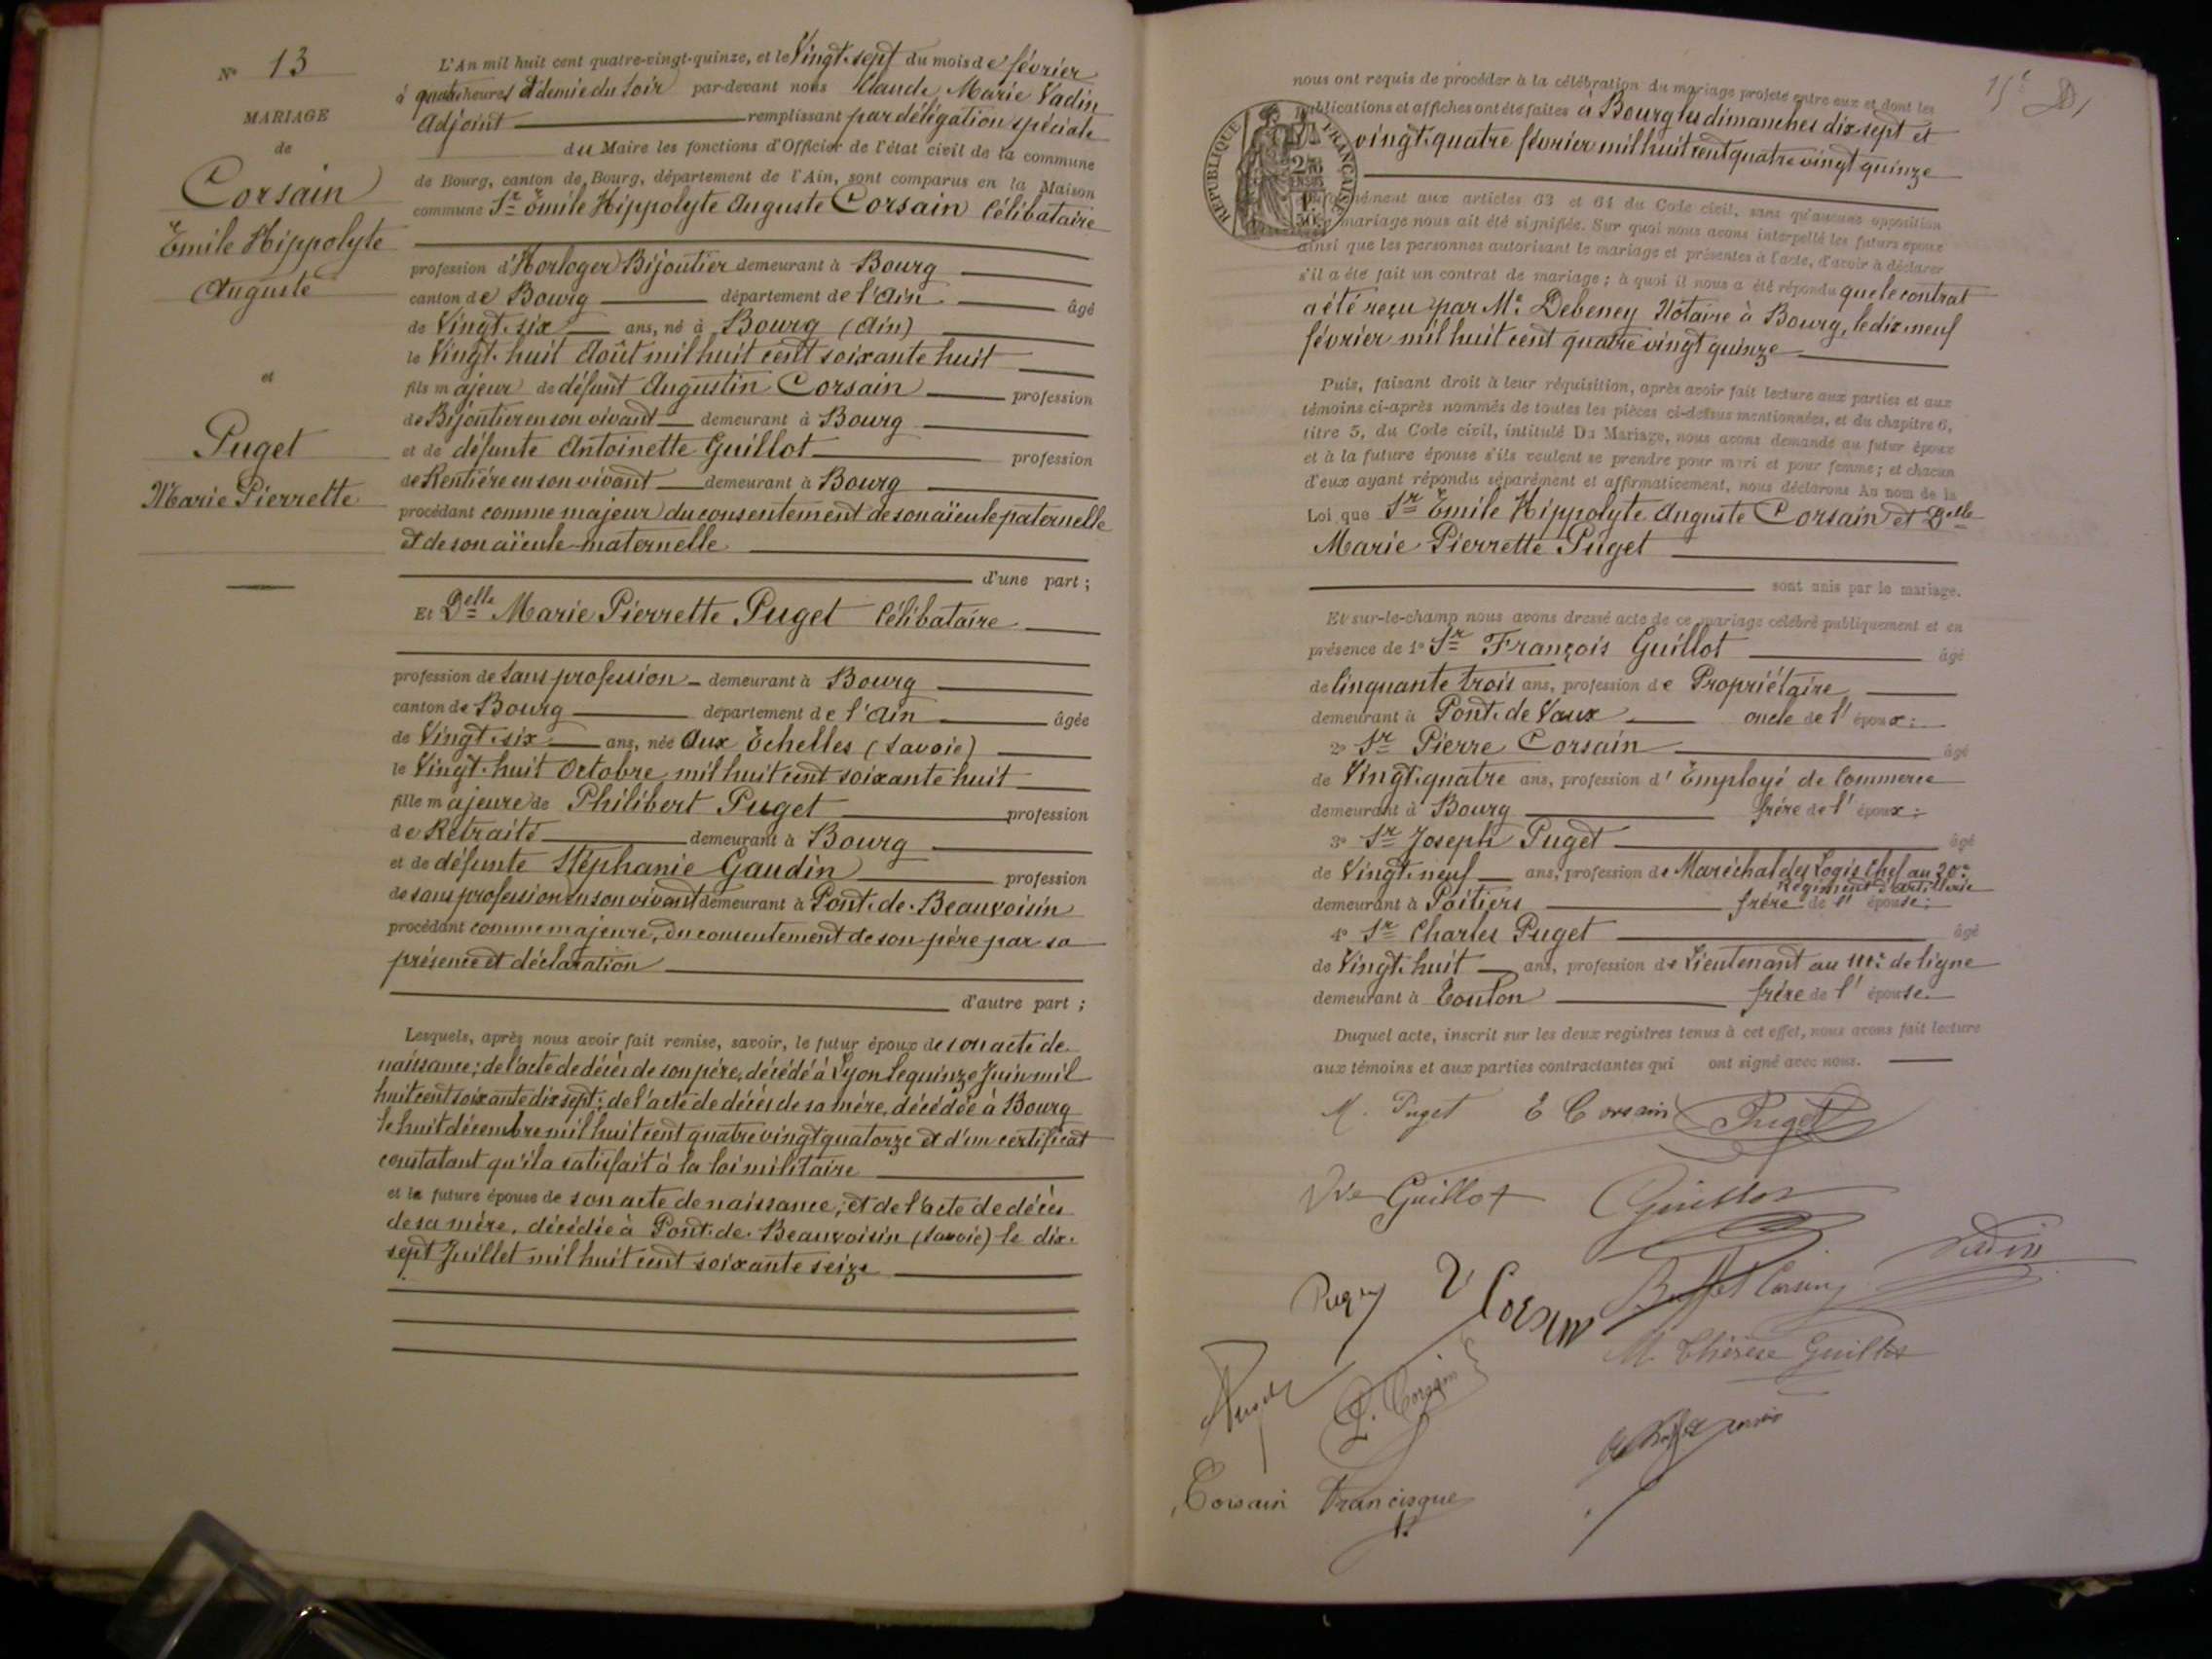 N° 13
MARIAGE
de
Corsain
Emile Hippolyte
Auguste
et
Puget
Marie Pierrette
L'An mil huit cent quatre-vingt-quinze, et le Vingt-sept du mois de février
à quatre heures et demie du soir par-devant nous Claude Marie Vadin
Adjoint remplissant par délégation spéciale
du Maire les fonctions d'Officier de l'état civil de la commune
de Bourg, canton de Bourg, département de l'Ain, sont comparus en la Maison
commune Sr Emile Hippolyte Auguste Corsain Célibataire
profession d'Horloger Bijoutier demeurant à Bourg
canton de Bourg département de l'Ain âgé
de Vingt-six ans, né à Bourg (Ain)
le Vingt-huit Août mil huit cent soixante huit
fils majeur de défunt Augustin Corsain profession
de Bijoutier en son vivant demeurant à Bourg
et de défunte Antoinette Guillot profession
de Rentière en son vivant demeurant à Bourg
procédant comme majeur du consentement de son aïeule paternelle
et de son aïeule maternelle
d'une part ;
Et Delle Marie Pierrette Puget Célibataire
profession de sans profession demeurant à Bourg
canton de Bourg département de l'Ain âgée
de Vingt-six ans, née aux Echelles (Savoie)
le Vingt-huit Octobre mil huit cent soixante huit
fille majeure de Philibert Puget profession
de Retraité demeurant à Bourg
et de défunte Stéphanie Gaudin profession
de sans profession en son vivant demeurant à Pont-de-Beauvoisin
procédant comme majeure, du consentement de son père par sa
présence et déclaration
d'autre part ;
Lesquels, après nous avoir fait remise, savoir, le futur époux de son acte de
naissance ; de l'acte de décès de son père, décédé à Lyon le quinze Juin mil
huit cent soixante dix sept ; de l'acte de décès de sa mère, décédée à Bourg
le huit décembre mil huit cent quatre vingt quatorze et d'un certificat
constatant qu'il a satisfait à la loi militaire
et la future épouse de son acte de naissance, et de l'acte de décès
de sa mère, décédée à Pont-de-Beauvoisin (Savoie) le dix-
sept Juillet mil huit cent soixante seize
nous ont requis de procéder à la célébration du mariage projeté entre eux et dont les
publications et affiches ont été faites à Bourg les dimanches dix-sept et
vingt-quatre février mil huit cent quatre vingt quinze
RÉPUBLIQUE FRANÇAISE
conformément aux articles 63 et 64 du Code civil, sans qu'aucune opposition
mariage nous ait été signifiée. Sur quoi nous avons interpellé les futurs époux
ainsi que les personnes autorisant le mariage et présentes à l'acte, d'avoir à déclarer
s'il a été fait un contrat de mariage ; à quoi il nous a été répondu que le contrat
a été reçu par Me Debeney Notaire à Bourg, le dix-neuf
février mil huit cent quatre vingt quinze
Puis, faisant droit à leur réquisition, après avoir fait lecture aux parties et aux
témoins ci-après nommés de toutes les pièces ci-dessus mentionnées, et du chapitre 6,
titre 5, du Code civil, intitulé Du Mariage, nous avons demandé au futur époux
et à la future épouse s'ils veulent se prendre pour mari et pour femme ; et chacun
d'eux ayant répondu séparément et affirmativement, nous déclarons Au nom de la
Loi que Sr Emile Hippolyte Auguste Corsain et Delle
Marie Pierrette Puget
sont unis par le mariage.
Et sur-le-champ nous avons dressé acte de ce mariage célébré publiquement et en
présence de 1° Sr François Guillot âgé
de Cinquante trois ans, profession de Propriétaire
demeurant à Pont-de-Vaux oncle de l'époux ;
2° Sr Pierre Corsain âgé
de Vingt-quatre ans, profession d'Employé de Commerce
demeurant à Bourg frère de l'époux ;
3° Sr Joseph Puget âgé
de Vingt-neuf ans, profession de Maréchal des Logis Chef au 20e
Régiment d'Artillerie
demeurant à Poitiers frère de l'épouse ;
4° Sr Charles Puget âgé
de Vingt-huit ans, profession de Lieutenant au 111e de ligne
demeurant à Toulon frère de l'épouse.
Duquel acte, inscrit sur les deux registres tenus à cet effet, nous avons fait lecture
aux témoins et aux parties contractantes qui ont signé avec nous.
M. Puget E Corsain Puget
Vve Guillot Guillot
Vadin
Puget V Corsain Buffet Corsain
M. Thérèse Guillot
Puget P. Corsain
Corsain Francisque